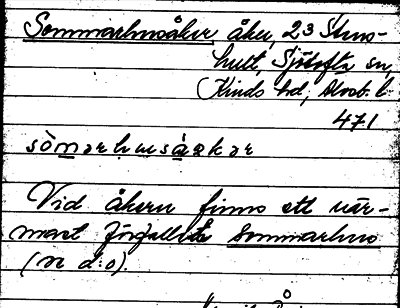 Sommarhusåker åker, 23 Stens-
hult, Sjötofta sn,
Kinds hd, Älvsb. l.
471
sòmarhusåkar
Vid åkern finns ett när-
mast förfallet Sommarhus
(n d:o).